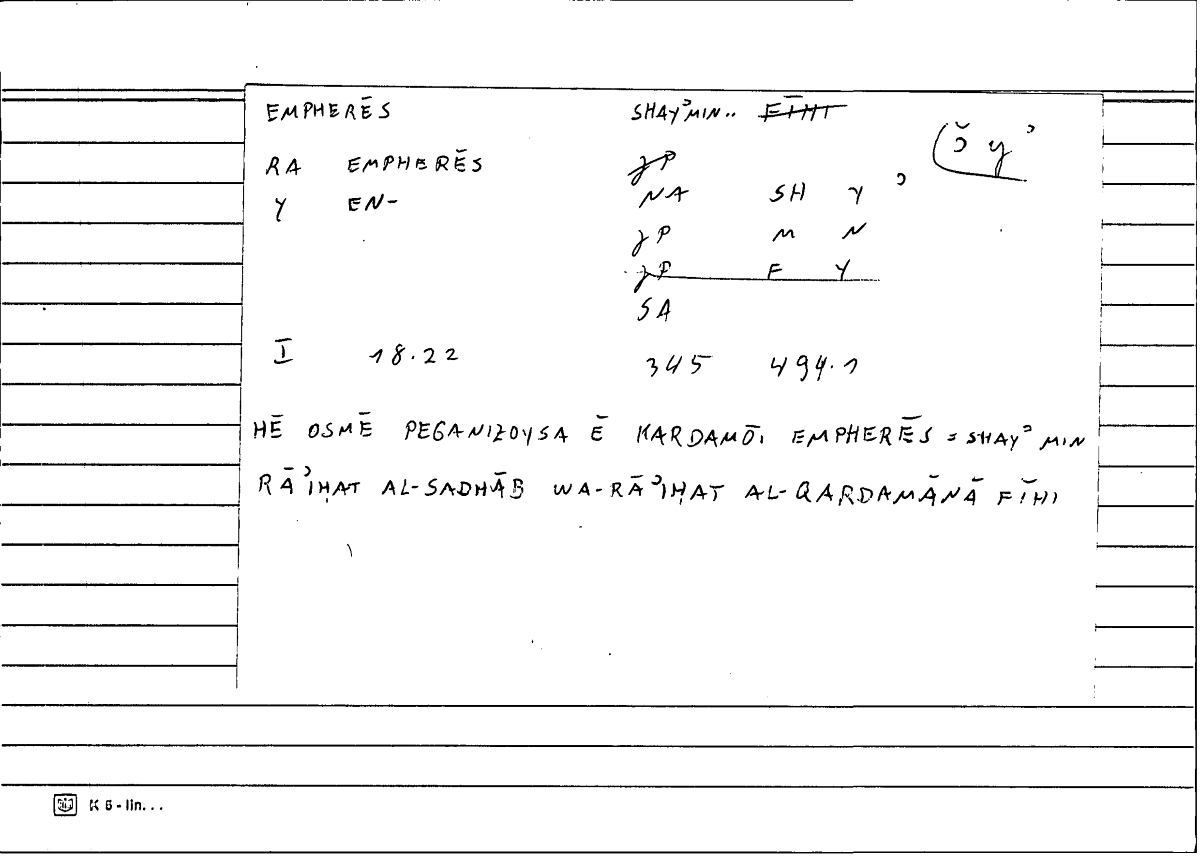 EMPHERĒS SHAYʾMIN.. FĪHI
RA EMPHERĒS
Y EN- NA SH Y ʾ
M N
F Y
SA
I 18.22 345 494.1
HĒ OSMĒ PEGANIZOYSA Ē KARDAMŌI EMPHERĒS = SHAYʾ MIN
RĀʾIḤAT AL-SADHĀB WA-RĀʾIḤAT AL-QARDAMĀNĀ FĪHI
K 6 - lin...